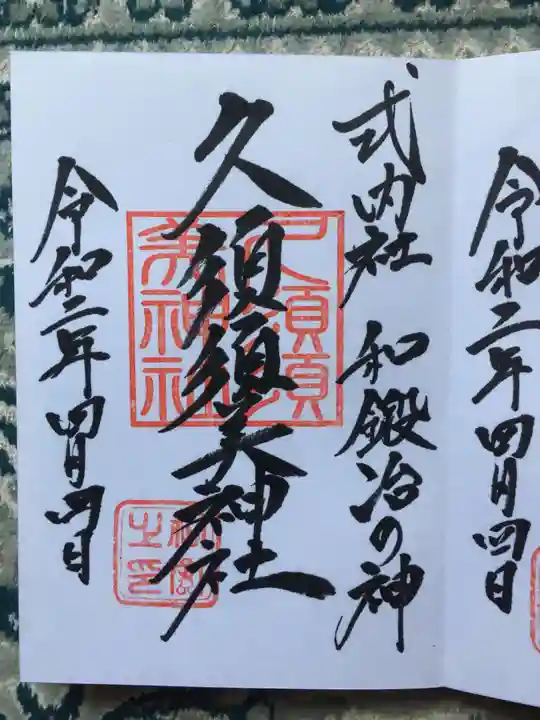 令和二年四月四日
式内社 和鍛冶の神
久須須美神社
令和二年 四月四日